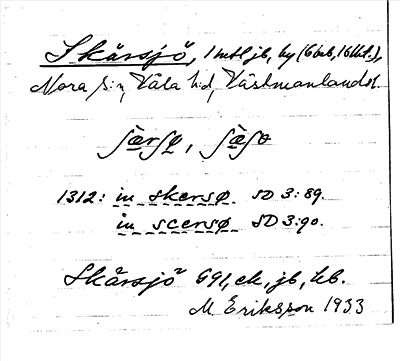 Skärsjö, 1 mtl jb, by (6 brk, 16 lht.),
Nora sn, Våla hd, Västmanlands l.
ʃæ̀rʃø, ʃæ̀ʃo
1312: in skersø SD 3:89.
in scersø SD 3:90.
Skärsjö GGI, ek, jb, kb.
M Eriksson 1933